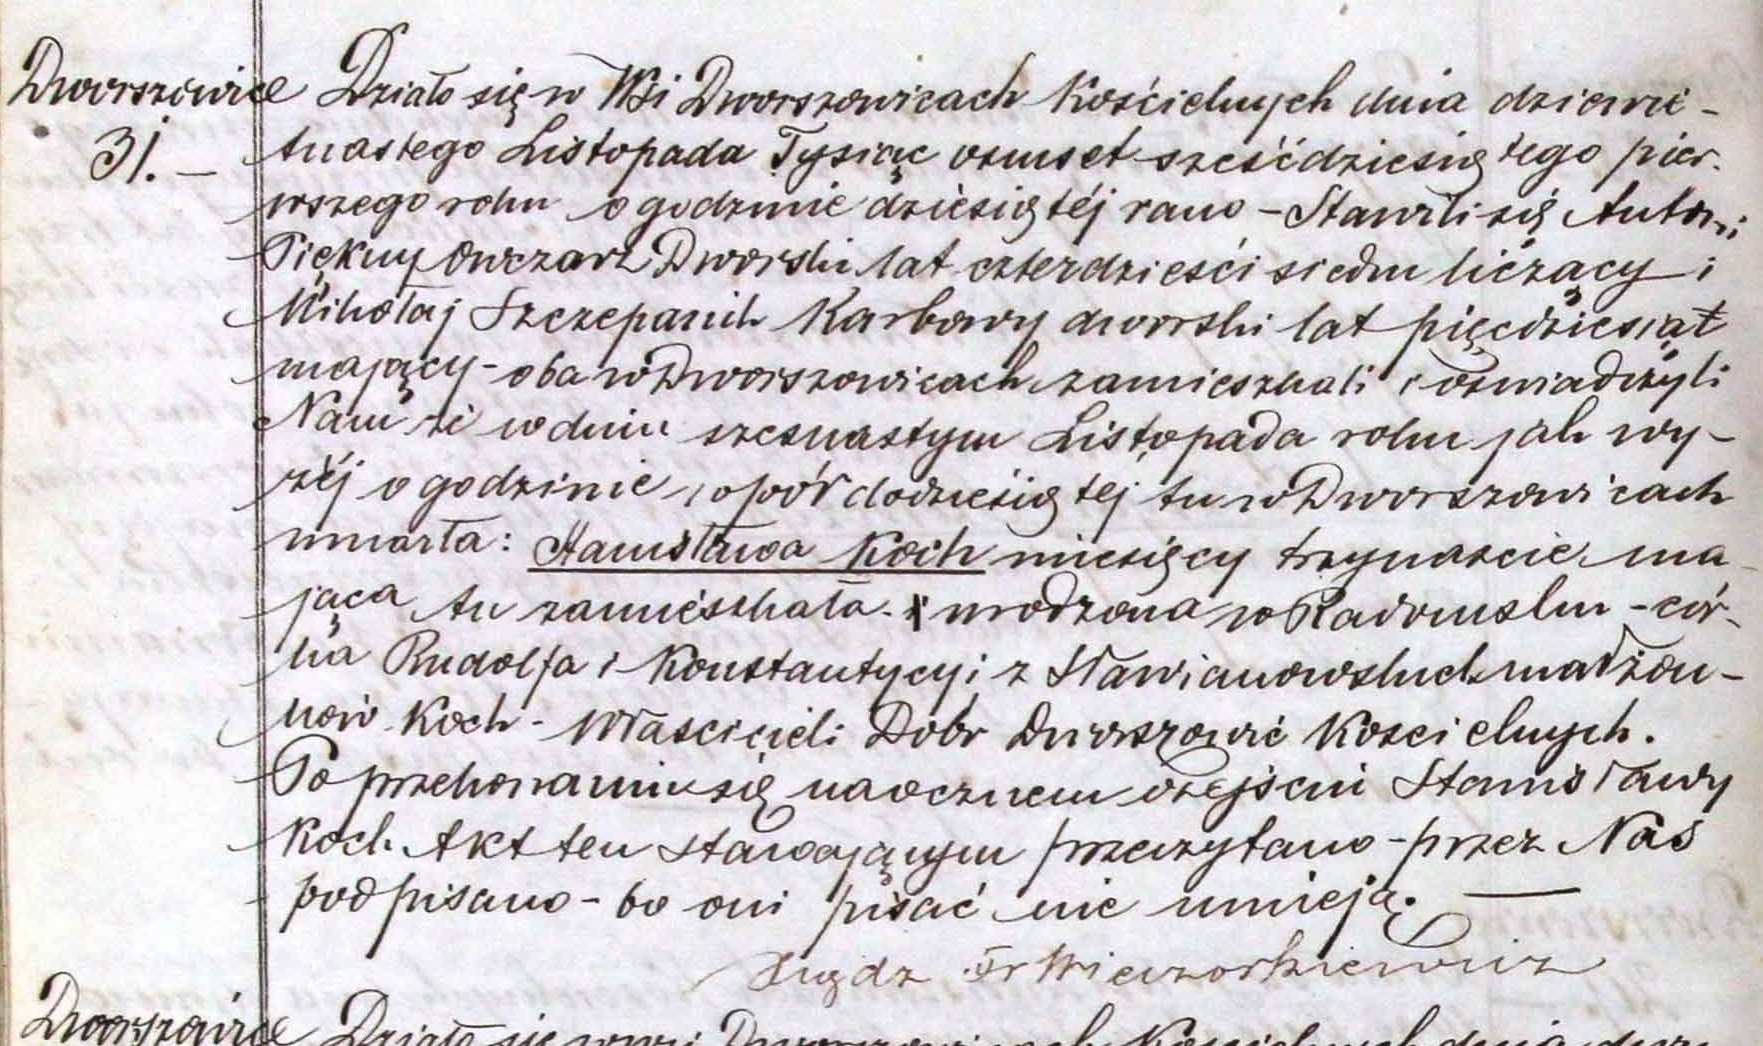 Dworszowice Działo się w Wsi Dworszowicach Kościelnych dnia dziewię-
31. – tnastego Listopada Tysiąc osmset sześćdziesiątego pier-
wszego roku o godzinie dziesiątéj rano – Stawili się Antoni
Piękny Owczarz Dworski lat czterdzieści siedm liczący i
Mikołaj Szczepanik Karbowy dworski lat pięćdziesiąt
mający – oba w Dworszowicach zamieszkali i oświadczyli
Nam że w dniu szesnastym Listopada roku jak wy-
żéj o godzinie wpół do dziesiątéj tu w Dworszowicach
umarła: Stanisława Koch miesięcy trzynaście ma-
jąca tu zamieszkała. urodzona w Radomsku – cór-
ka Rudolfa i Konstantycyi z Sławianowskich małżon-
ków Koch – Właścicieli Dobr Dworszowic Kościelnych.
Po przekonaniu się naocznem o zejściu Stanisławy
Koch Akt ten stawającym przeczytano – przez Nas
podpisano – bo oni pisać nie umieją. —
Xiądz Fr Wieczorkiewicz
Dworszowice Działo się w wsi Dworszowicach Kościelnych dnia